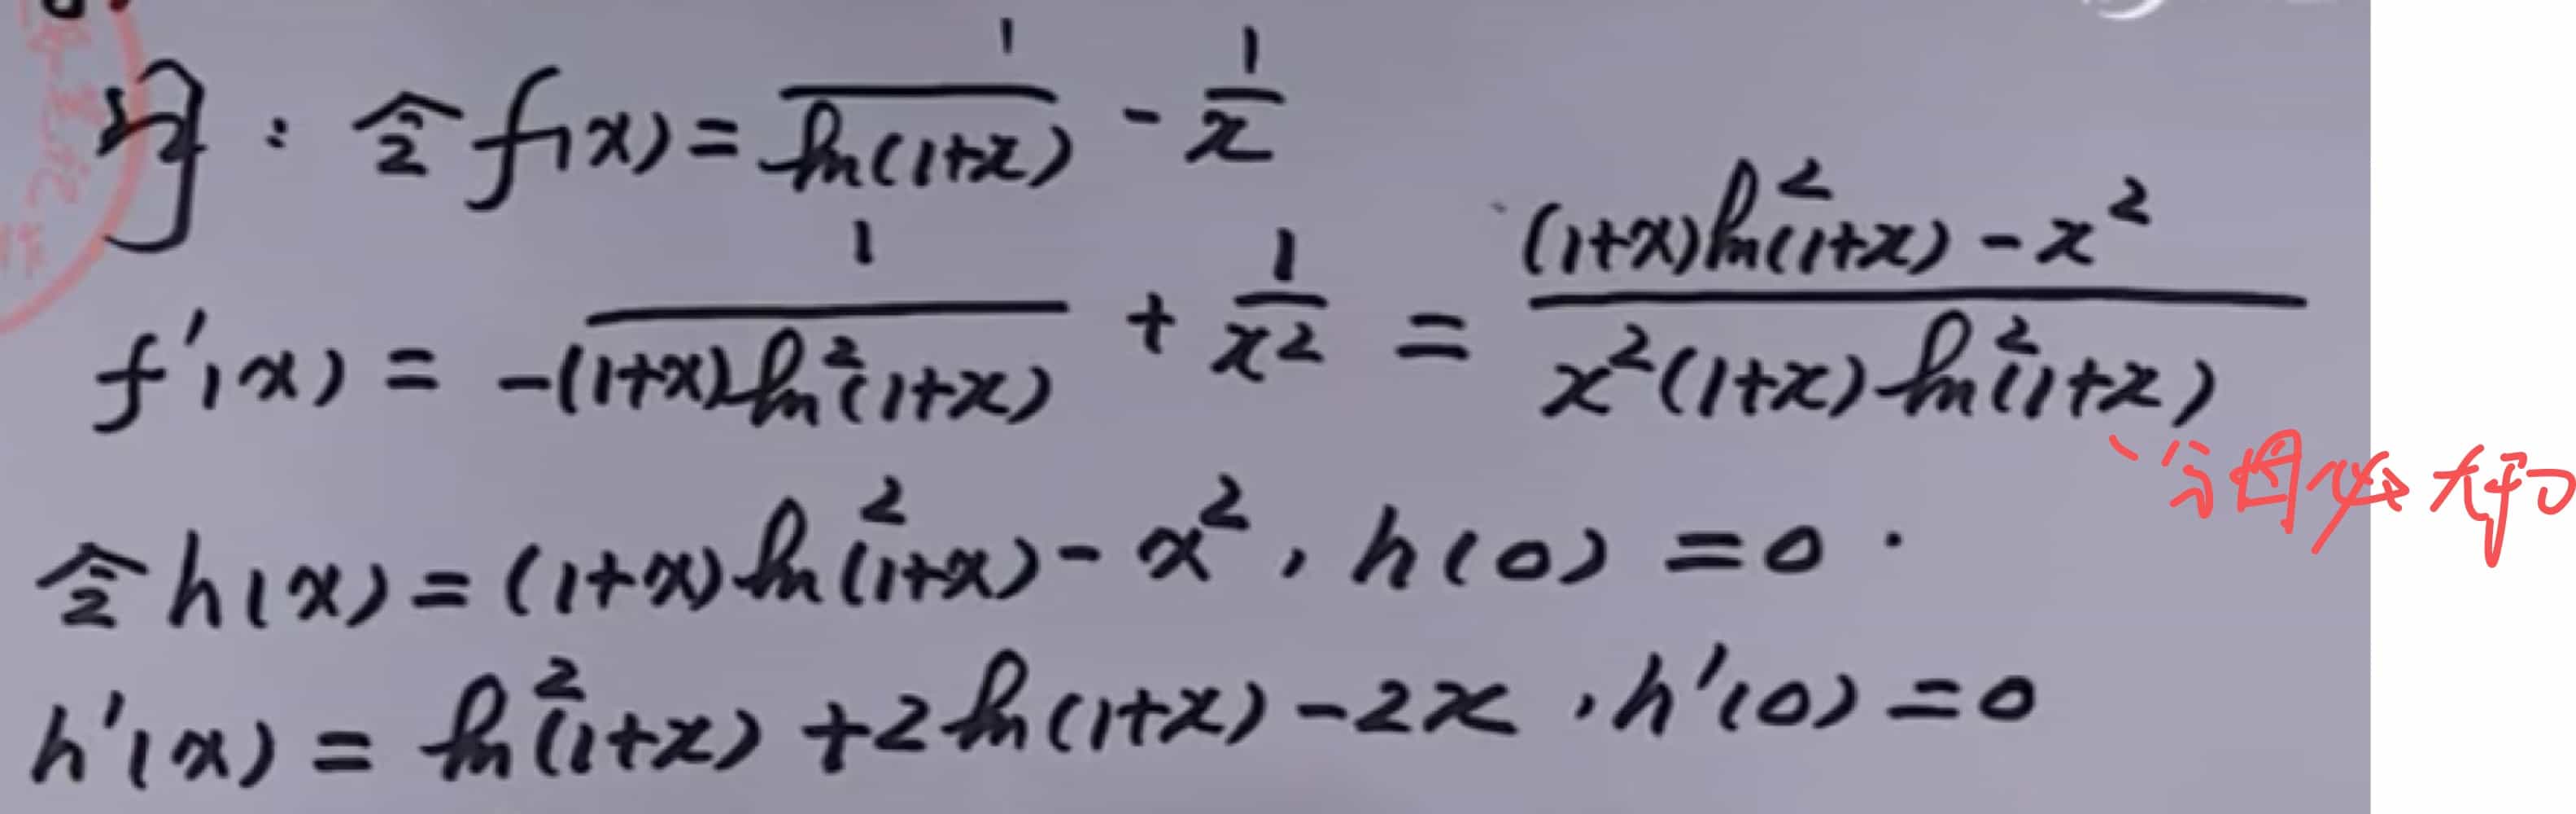 证：令f(x)=1/ln(1+x) - 1/x
f'(x) = 1/-(1+x)ln²(1+x) + 1/x² = (1+x)ln²(1+x)-x²/x²(1+x)ln²(1+x)
、分母必大于0
令h(x)=(1+x)ln²(1+x)-x², h(0)=0.
h'(x)=ln²(1+x)+2ln(1+x)-2x, h'(0)=0